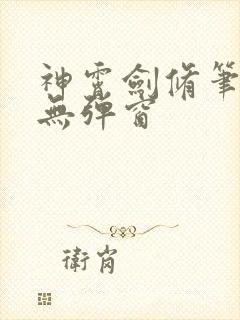 神霄劍脩筆
無彈窗
衛肖